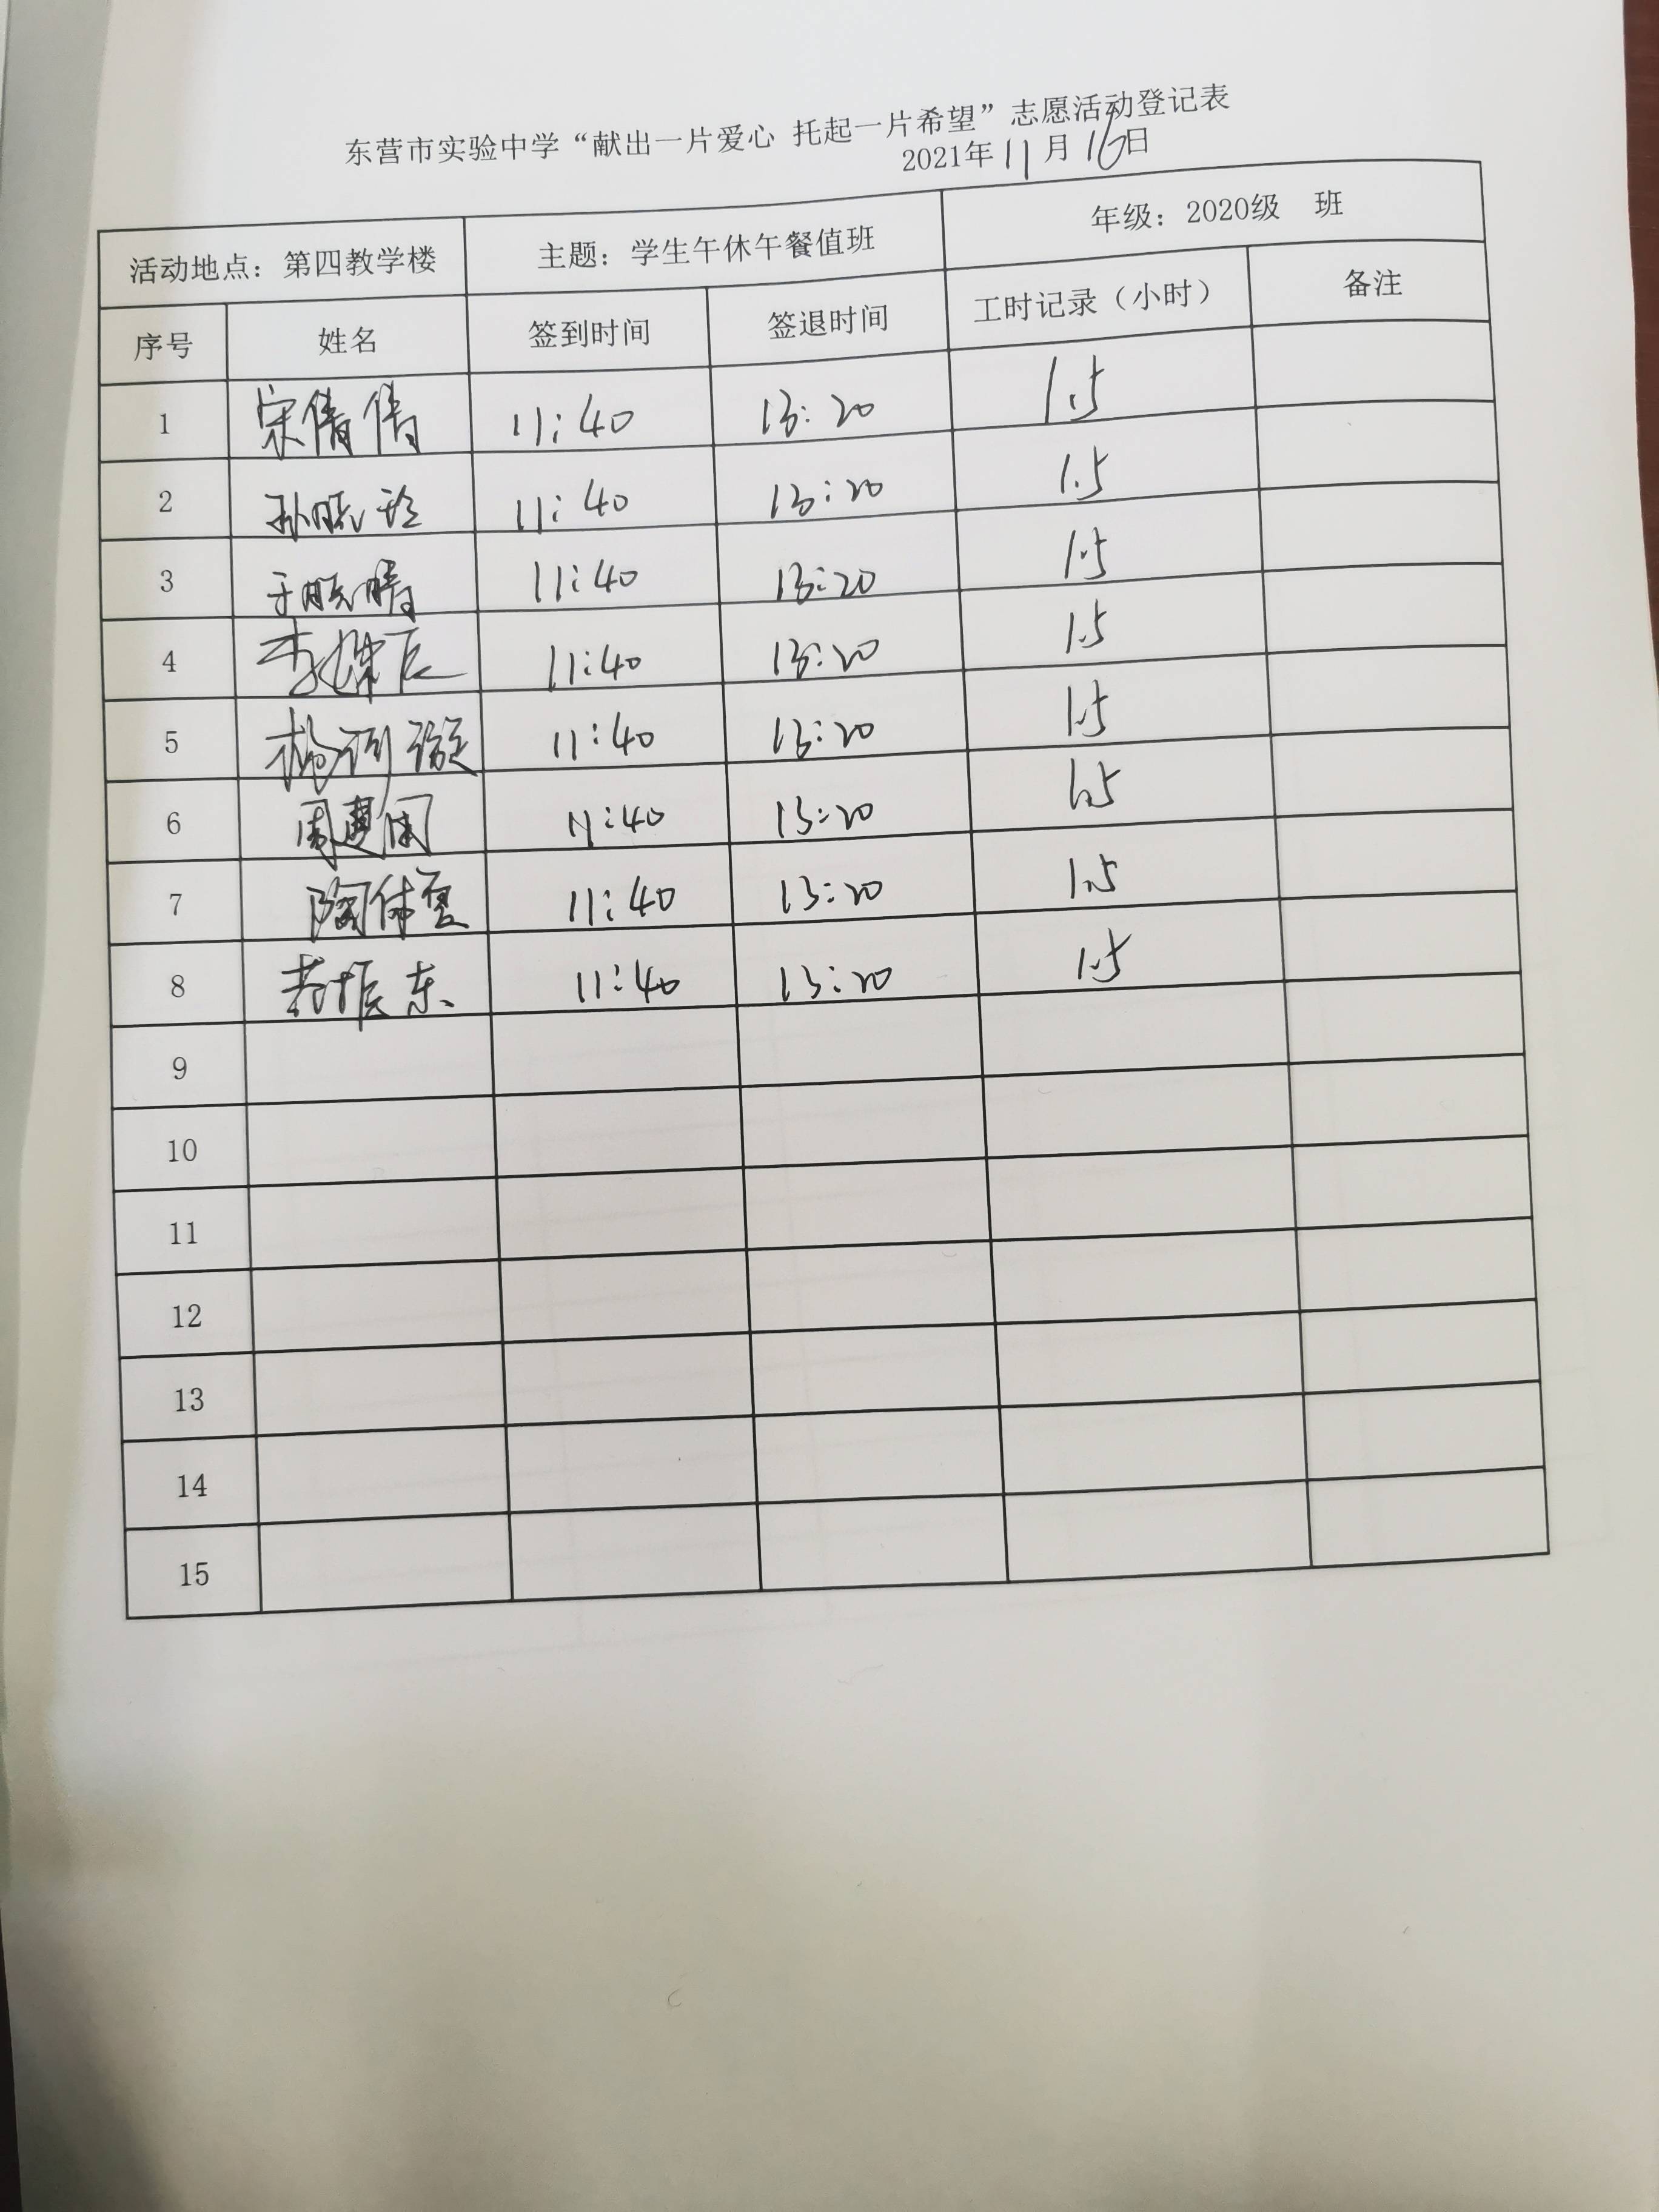 东营市实验中学“献出一片爱心 托起一片希望”志愿活动登记表
2021年11月16日
活动地点：第四教学楼 主题：学生午休午餐值班 年级：2020级 班
序号 姓名 签到时间 签退时间 工时记录（小时） 备注
1 宋倩倩 11:40 13:20 1.5
2 孙晓玲 11:40 13:20 1.5
3 于晓晴 11:40 13:20 1.5
4 李 11:40 13:20 1.5
5 杨 11:40 13:20 1.5
6 周 11:40 13:20 1.5
7 陶 11:40 13:20 1.5
8 振东 11:40 13:20 1.5
9
10
11
12
13
14
15